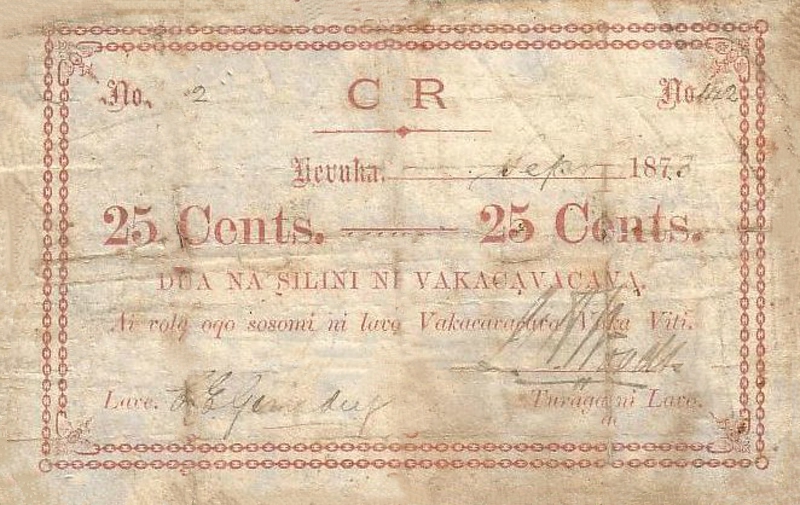 No. 2 C R No 142
Levuka. 1873
25 Cents. 25 Cents.
DUA NA SILINI NI VAKACAVACAVA.
Ai volg oqo sosomi ni lavo Vakacavacava Vaka Viti.
Lave. Turaga ni Lavo.